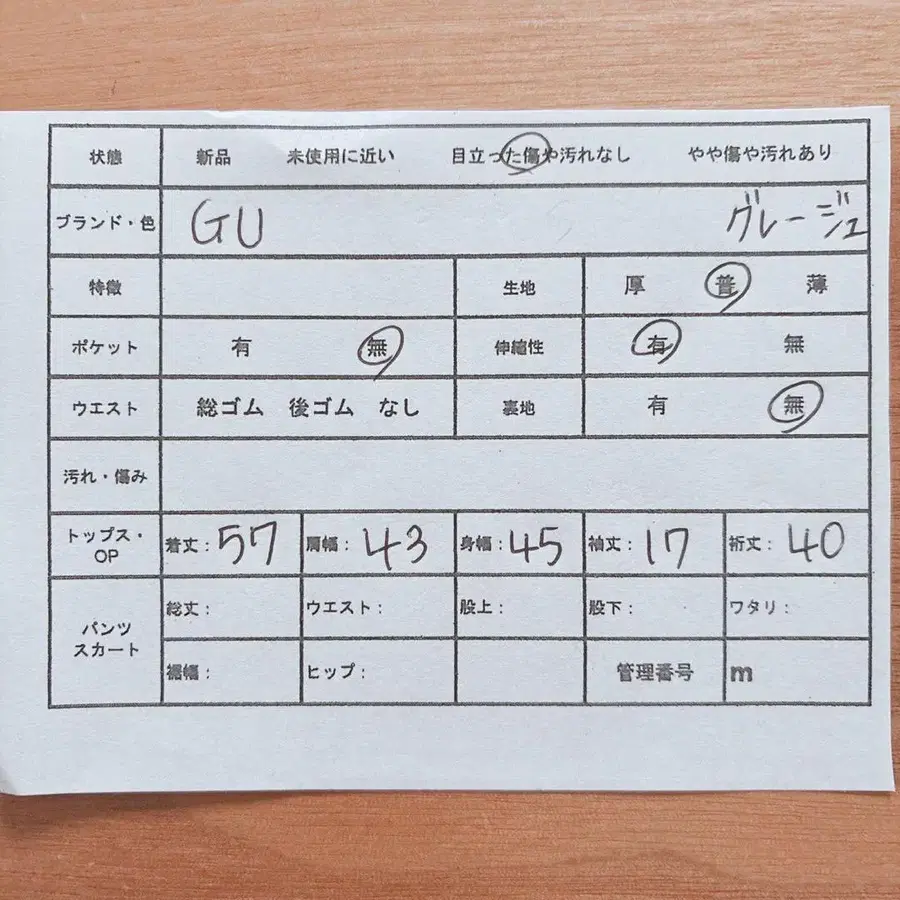 状態 新品 未使用に近い 目立った傷や汚れなし やや傷や汚れあり
ブランド・色 GU グレージュ
特徴 生地 厚 普 薄
ポケット 有 無 伸縮性 有 無
ウエスト 総ゴム 後ゴム なし 裏地 有 無
汚れ・傷み
トップス・OP 着丈：57 肩幅：43 身幅：45 袖丈：17 裄丈：40
パンツ スカート 総丈： ウエスト： 股上： 股下： ワタリ：
裾幅： ヒップ： 管理番号 m